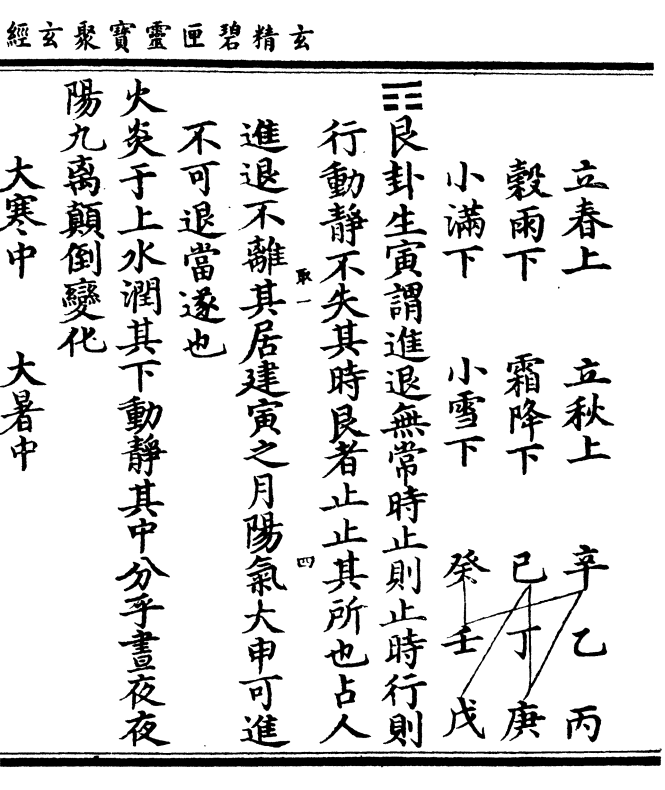 玄精碧匣靈寶聚玄經
立春上 立秋上 辛乙丙
穀雨下 霜降下 己丁庚
小滿下 小雪下 癸壬戊
☶艮卦生寅謂進退無常時止則止時行則
行動靜不失其時艮者止止其所也占人
聚一 四
進退不離其居建寅之月陽氣大申可進
不可退當遂也
火炎于上水潤其下動靜其中分乎晝夜夜
陽九离顛倒變化
大寒中 大暑中